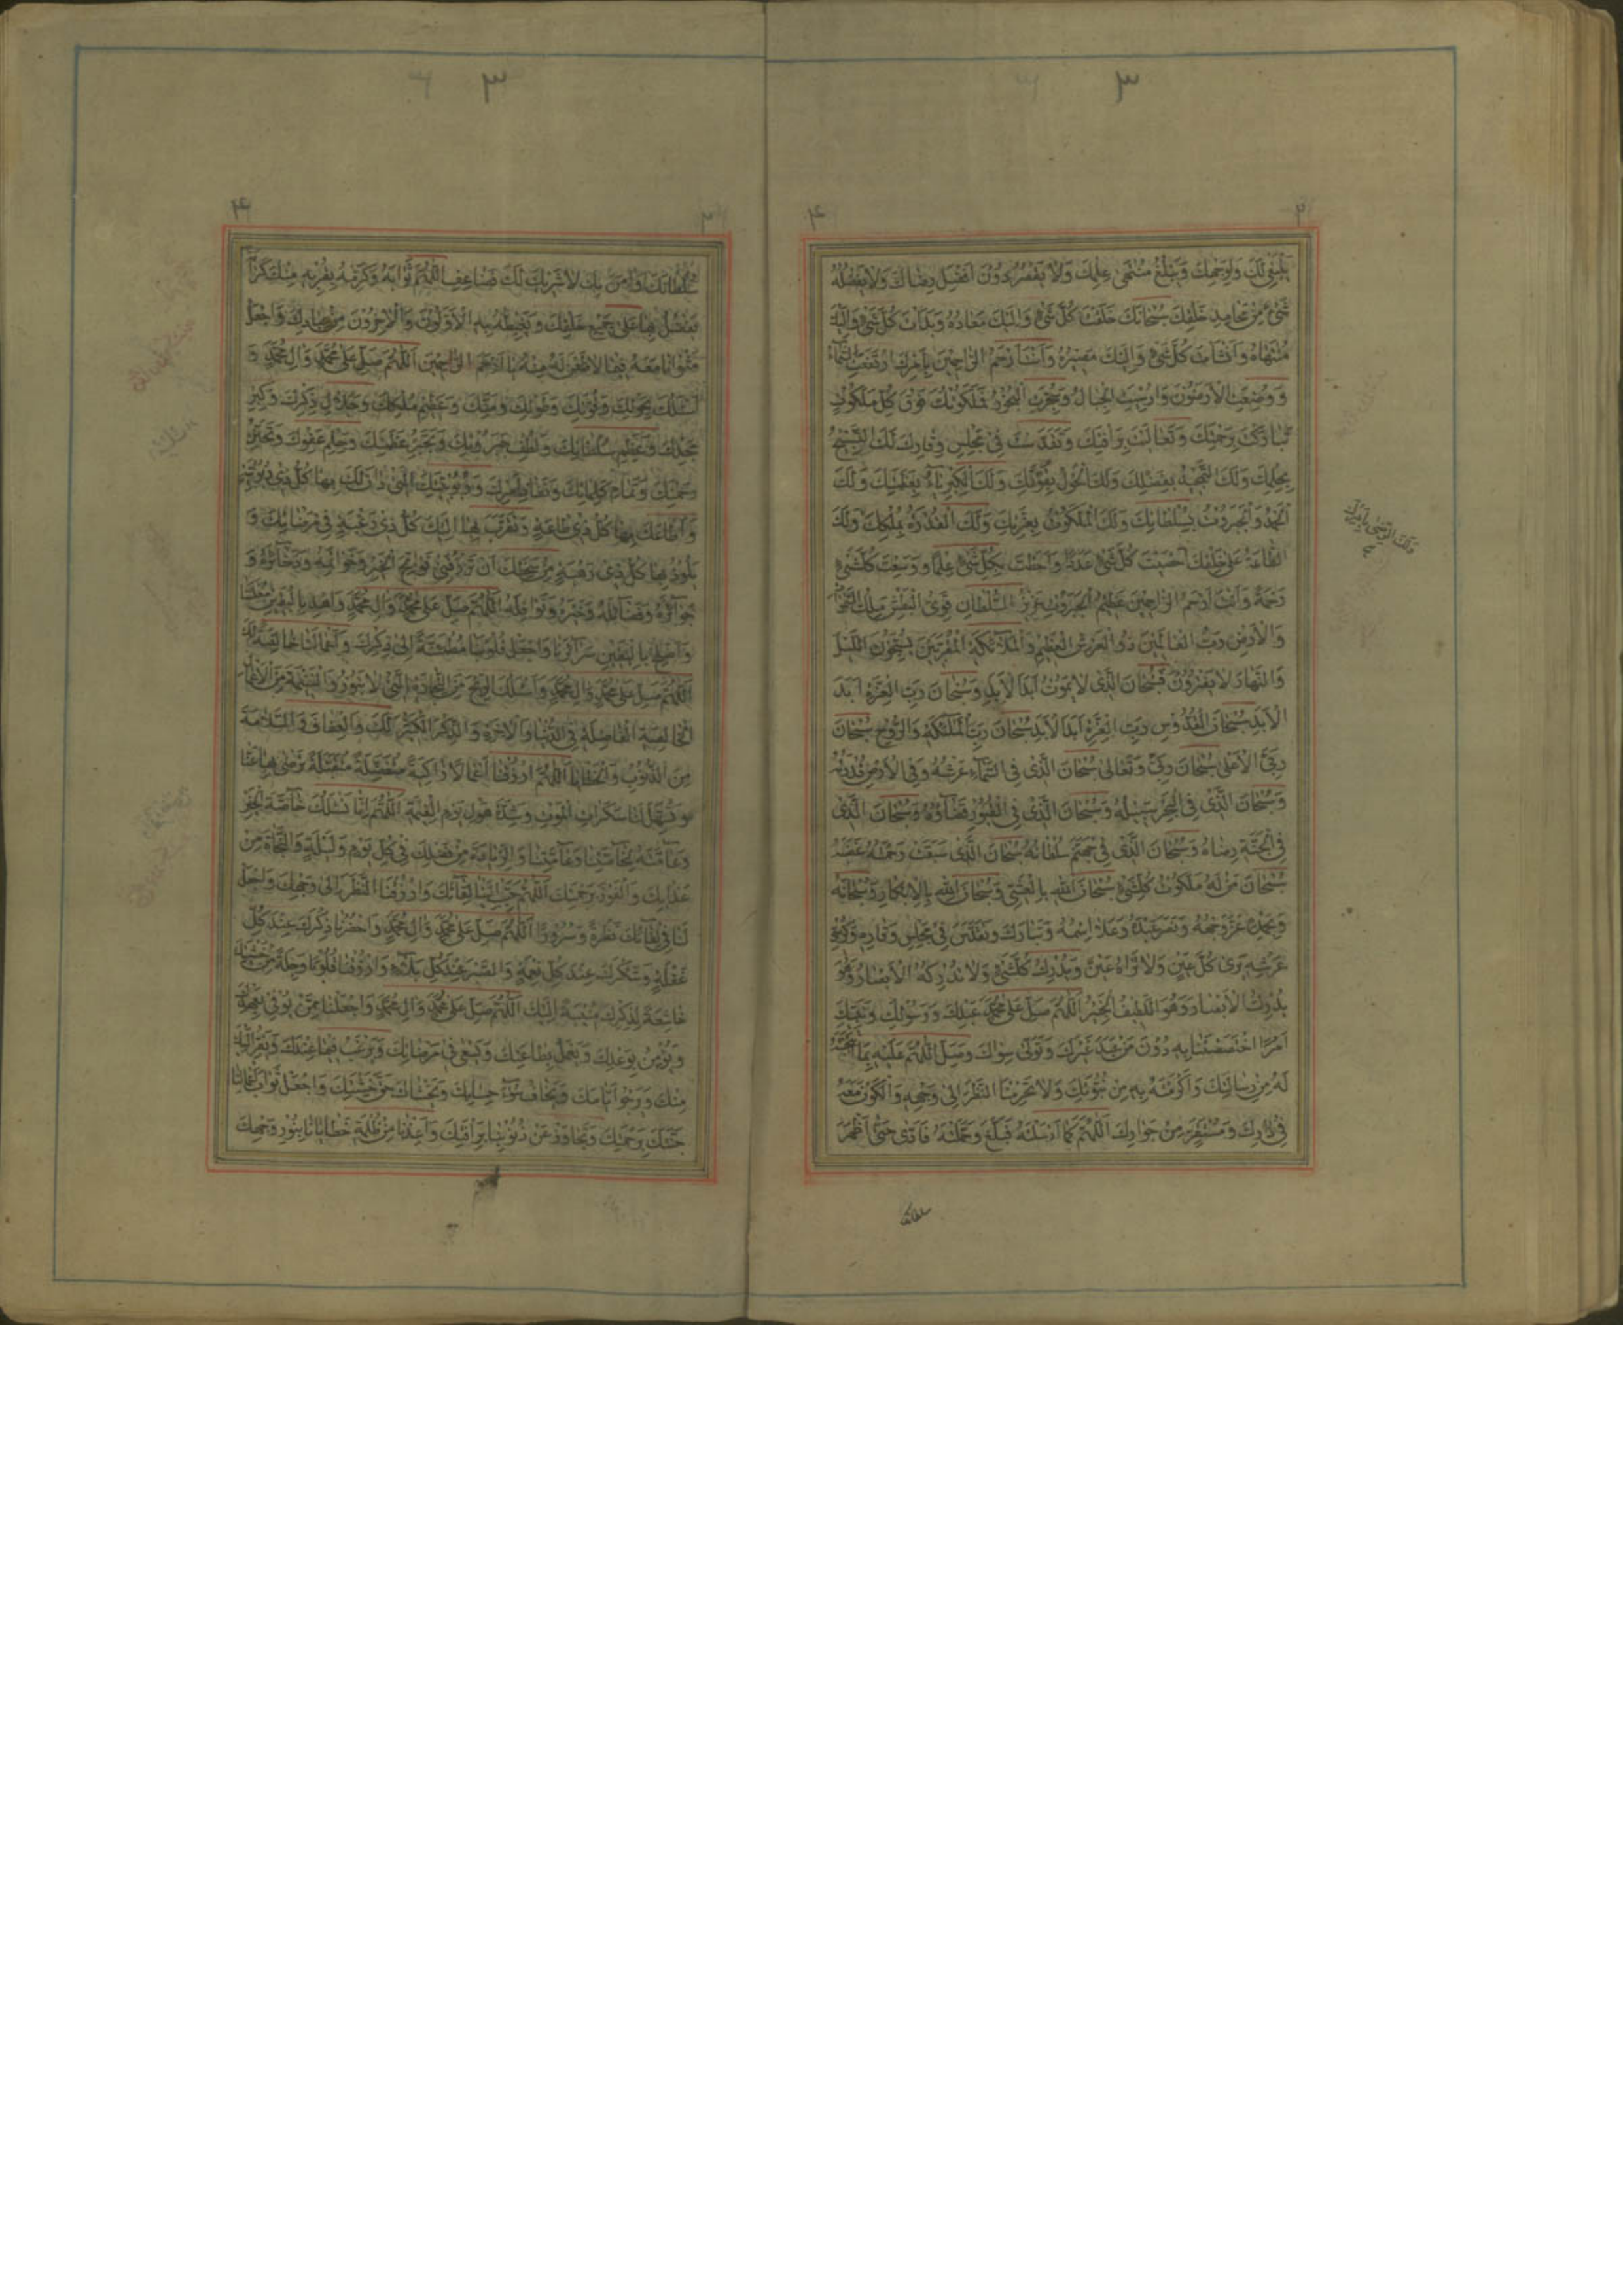 ٣
٢ ٤
يَنْبَغِي لَكَ وَلِوَجْهِكَ وَيَبْلُغُ مُنْتَهَى عِلْمِكَ وَلَا يَقْصُرُ دُونَ أَفْضَلِ رِضَاكَ وَلَا يَفْضُلُهُ
شَيْءٌ مِنْ مَحَامِدِ خَلْقِكَ سُبْحَانَكَ خَلَقْتَ كُلَّ شَيْءٍ وَإِلَيْكَ مَعَادُهُ وَبَدَأْتَ كُلَّ شَيْءٍ وَإِلَيْكَ
مُنْتَهَاهُ وَأَنْشَأْتَ كُلَّ شَيْءٍ وَإِلَيْكَ مَصِيرُهُ وَأَنْتَ أَرْحَمُ الرَّاحِمِينَ بِأَمْرِكَ ارْتَفَعَتِ السَّمَاءُ
وَوُضِعَتِ الْأَرَضُونَ وَأُرْسِيَتِ الْجِبَالُ وَسُجِّرَتِ الْبُحُورُ فَمَلَكُوتُكَ فَوْقَ كُلِّ مَلَكُوتٍ
تَبَارَكْتَ بِرَحْمَتِكَ وَتَعَالَيْتَ بِرَأْفَتِكَ وَتَقَدَّسْتَ فِي مَجْلِسِ وَقَارِكَ لَكَ التَّسْبِيحُ
بِحِلْمِكَ وَلَكَ التَّمْجِيدُ بِفَضْلِكَ وَلَكَ الْحَوْلُ بِقُوَّتِكَ وَلَكَ الْكِبْرِيَاءُ بِعَظَمَتِكَ وَلَكَ
الْحَمْدُ وَالْجَبَرُوتُ بِسُلْطَانِكَ وَلَكَ الْمَلَكُوتُ بِعِزَّتِكَ وَلَكَ الْقُدْرَةُ بِمُلْكِكَ وَلَكَ
الطَّاعَةُ عَلَى خَلْقِكَ أَحْصَيْتَ كُلَّ شَيْءٍ عَدَدًا وَأَحَطْتَ بِكُلِّ شَيْءٍ عِلْمًا وَوَسِعْتَ كُلَّ شَيْءٍ
رَحْمَةً وَأَنْتَ أَرْحَمُ الرَّاحِمِينَ عَظِيمُ الْجَبَرُوتِ عَزِيزُ السُّلْطَانِ قَوِيُّ الْبَطْشِ مَلِكُ السَّمٰوَاتِ
وَالْأَرْضِ رَبُّ الْعَالَمِينَ ذُو الْعَرْشِ الْعَظِيمِ وَالْمَلَائِكَةِ الْمُقَرَّبِينَ يُسَبِّحُونَ اللَّيْلَ
وَالنَّهَارَ لَا يَفْتُرُونَ فَسُبْحَانَ الَّذِي لَا يَمُوتُ أَبَدَ الْأَبَدِ وَسُبْحَانَ رَبِّ الْعِزَّةِ أَبَدَ
الْأَبَدِ سُبْحَانَ الْقُدُّوسِ رَبِّ الْعِزَّةِ أَبَدَ الْأَبَدِ سُبْحَانَ رَبِّ الْمَلٰئِكَةِ وَالرُّوحِ سُبْحَانَ
رَبِّيَ الْأَعْلَى سُبْحَانَ رَبِّي وَتَعَالَى سُبْحَانَ الَّذِي فِي السَّمَاءِ عَرْشُهُ وَفِي الْأَرْضِ قُدْرَتُهُ
وَسُبْحَانَ الَّذِي فِي الْبَحْرِ سَبِيلُهُ وَسُبْحَانَ الَّذِي فِي الْقُبُورِ قَضَاؤُهُ وَسُبْحَانَ الَّذِي
فِي الْجَنَّةِ رِضَاهُ وَسُبْحَانَ الَّذِي فِي جَهَنَّمَ سُلْطَانُهُ سُبْحَانَ الَّذِي سَبَقَتْ رَحْمَتُهُ غَضَبَهُ
سُبْحَانَ مَنْ لَهُ مَلَكُوتُ كُلِّ شَيْءٍ سُبْحَانَ اللهِ بِالْعَشِيِّ وَسُبْحَانَ اللهِ بِالْإِبْكَارِ وَسُبْحَانَهُ
وَبِحَمْدِهِ عَزَّ وَجْهُهُ وَنَصَرَ عَبْدَهُ وَعَلَا اسْمُهُ وَتَبَارَكَ وَتَقَدَّسَ فِي مَجْلِسِ وَقَارِهِ وَكُرْسِيِّ
عَرْشِهِ يَرَى كُلَّ عَيْنٍ وَلَا تَرَاهُ عَيْنٌ وَيُدْرِكُ كُلَّ شَيْءٍ وَلَا تُدْرِكُهُ الْأَبْصَارُ وَهُوَ
يُدْرِكُ الْأَبْصَارَ وَهُوَ اللَّطِيفُ الْخَبِيرُ اللّٰهُمَّ صَلِّ عَلَى مُحَمَّدٍ عَبْدِكَ وَرَسُولِكَ وَنَبِيِّكَ
أَمْرًا اخْتَصَصْتَنَا بِهِ دُونَ مَنْ عَبَدَ غَيْرَكَ وَتَوَلَّى سِوَاكَ وَصَلِّ اللّٰهُمَّ عَلَيْهِ بِمَا انْتَجَبْتَهُ
لَهُ مِنْ رِسَالَتِكَ وَأَكْرَمْتَهُ بِهِ مِنْ نُبُوَّتِكَ وَلَا تَحْرِمْنَا النَّظَرَ إِلَى وَجْهِهِ وَالْكَوْنَ مَعَهُ
فِي دَارِكَ وَمُسْتَقَرٍّ مِنْ جِوَارِكَ اللّٰهُمَّ كَمَا أَرْسَلْتَهُ فَبَلَّغَ وَحَمَّلْتَهُ فَأَدَّى حَتَّى أَظْهَرَ
سلطانك
٣
٤
سُلْطَانَكَ وَآمَنَ بِكَ لَا شَرِيكَ لَكَ فَضَاعِفِ اللّٰهُمَّ ثَوَابَهُ وَكَرِّمْهُ بِقُرْبِهِ مِنْكَ كَرَامَةً
يَفْضُلُ بِهَا عَلَى جَمِيعِ خَلْقِكَ وَيَغْبِطُهُ بِهِ الْأَوَّلُونَ وَالْآخِرُونَ مِنْ عِبَادِكَ وَاجْعَلْ
مَثْوَانَا مَعَهُ فِيمَا لَا ظَعْنَ لَهُ مِنْهُ يَا أَرْحَمَ الرَّاحِمِينَ اللّٰهُمَّ صَلِّ عَلَى مُحَمَّدٍ وَآلِ مُحَمَّدٍ وَ
أَسْأَلُكَ بِحَوْلِكَ وَقُوَّتِكَ وَطَوْلِكَ وَمَنِّكَ وَعَظِيمِ مُلْكِكَ وَجَلَالِ ذِكْرِكَ وَكِبَرِ
مَجْدِكَ وَعَظِيمِ سُلْطَانِكَ وَلُطْفِ جَبَرُوتِكَ وَتَجَبُّرِ عَظَمَتِكَ وَحِلْمِ عَفْوِكَ وَتَحَنُّنِ
رَحْمَتِكَ وَتَمَامِ كَلِمَاتِكَ وَنَفَاذِ أَمْرِكَ وَرُبُوبِيَّتِكَ الَّتِي دَانَ لَكَ بِهَا كُلُّ ذِي رُبُوبِيَّةٍ
وَأَطَاعَكَ بِهَا كُلُّ ذِي طَاعَةٍ وَتَقَرَّبَ بِهَا إِلَيْكَ كُلُّ ذِي رَغْبَةٍ فِي مَرْضَاتِكَ وَ
يَلُوذُ بِهَا كُلُّ ذِي رَهْبَةٍ مِنْ سَخَطِكَ أَنْ تَرْزُقَنِي فَوَاتِحَ الْخَيْرِ وَخَوَاتِمَهُ وَذَخَائِرَهُ وَ
جَوَائِزَهُ وَفَضَائِلَهُ وَخَيْرَهُ وَنَوَافِلَهُ اللّٰهُمَّ صَلِّ عَلَى مُحَمَّدٍ وَآلِ مُحَمَّدٍ وَاهْدِ بِالْيَقِينِ
وَأَصْلِحْ بِالْيَقِينِ سَرَائِرَنَا وَاجْعَلْ قُلُوبَنَا مُطْمَئِنَّةً إِلَى ذِكْرِكَ وَأَعْمَالَنَا خَالِصَةً لَكَ
اللّٰهُمَّ صَلِّ عَلَى مُحَمَّدٍ وَآلِ مُحَمَّدٍ وَأَسْأَلُكَ الرِّبْحَ مِنَ التِّجَارَةِ الَّتِي لَا تَبُورُ وَالْغَنِيمَةَ مِنَ الْأَعْمَالِ
الْخَالِصَةِ الْفَاضِلَةِ فِي الدُّنْيَا وَالْآخِرَةِ وَالذِّكْرَ الْكَثِيرَ لَكَ وَالْعَفَافَ وَالسَّلَامَةَ
مِنَ الذُّنُوبِ وَالْخَطَايَا اللّٰهُمَّ ارْزُقْنَا أَعْمَالًا زَاكِيَةً مُتَقَبَّلَةً تَرْضَى بِهَا عَنَّا
وَتُسَهِّلُ لَنَا سَكَرَاتِ الْمَوْتِ وَشِدَّةَ هَوْلِ يَوْمِ الْقِيٰمَةِ اللّٰهُمَّ إِنَّا نَسْأَلُكَ خَاصَّةَ الْخَيْرِ
وَعَامَّتَهُ لِخَاصَّتِنَا وَعَامَّتِنَا وَالزِّيَادَةَ مِنْ فَضْلِكَ فِي كُلِّ يَوْمٍ وَلَيْلَةٍ وَالنَّجَاةَ مِنْ
عَذَابِكَ وَالْفَوْزَ بِرَحْمَتِكَ اللّٰهُمَّ حَبِّبْ إِلَيْنَا لِقَاءَكَ وَارْزُقْنَا النَّظَرَ إِلَى وَجْهِكَ وَاجْعَلْ
لَنَا فِي لِقَائِكَ نَظْرَةً وَسُرُورًا اللّٰهُمَّ صَلِّ عَلَى مُحَمَّدٍ وَآلِ مُحَمَّدٍ وَاحْضُرْنَا ذِكْرَكَ عِنْدَ كُلِّ
غَفْلَةٍ وَشُكْرَكَ عِنْدَ كُلِّ نِعْمَةٍ وَالصَّبْرَ عِنْدَ كُلِّ بَلَاءٍ وَارْزُقْنَا قُلُوبًا وَجِلَةً مِنْ خَشْيَتِكَ
خَاشِعَةً لِذِكْرِكَ مُنِيبَةً إِلَيْكَ اللّٰهُمَّ صَلِّ عَلَى مُحَمَّدٍ وَآلِ مُحَمَّدٍ وَاجْعَلْنَا مِمَّنْ يُوفِي بِعَهْدِكَ
وَيُؤْمِنُ بِوَعْدِكَ وَيَعْمَلُ بِطَاعَتِكَ وَيَسْعَى فِي مَرْضَاتِكَ وَيَرْغَبُ فِيمَا عِنْدَكَ وَيَفِرُّ إِلَيْكَ
مِنْكَ وَيَرْجُو أَيَّامَكَ وَيَخَافُ سُوءَ حِسَابِكَ وَيَخْشَاكَ حَقَّ خَشْيَتِكَ وَاجْعَلْ ثَوَابَ أَعْمَالِنَا
جَنَّتَكَ بِرَحْمَتِكَ وَتَجَاوَزْ عَنْ ذُنُوبِنَا بِرَأْفَتِكَ وَأَعِذْنَا مِنْ ظُلْمَةِ خَطَايَانَا بِنُورِ وَجْهِكَ